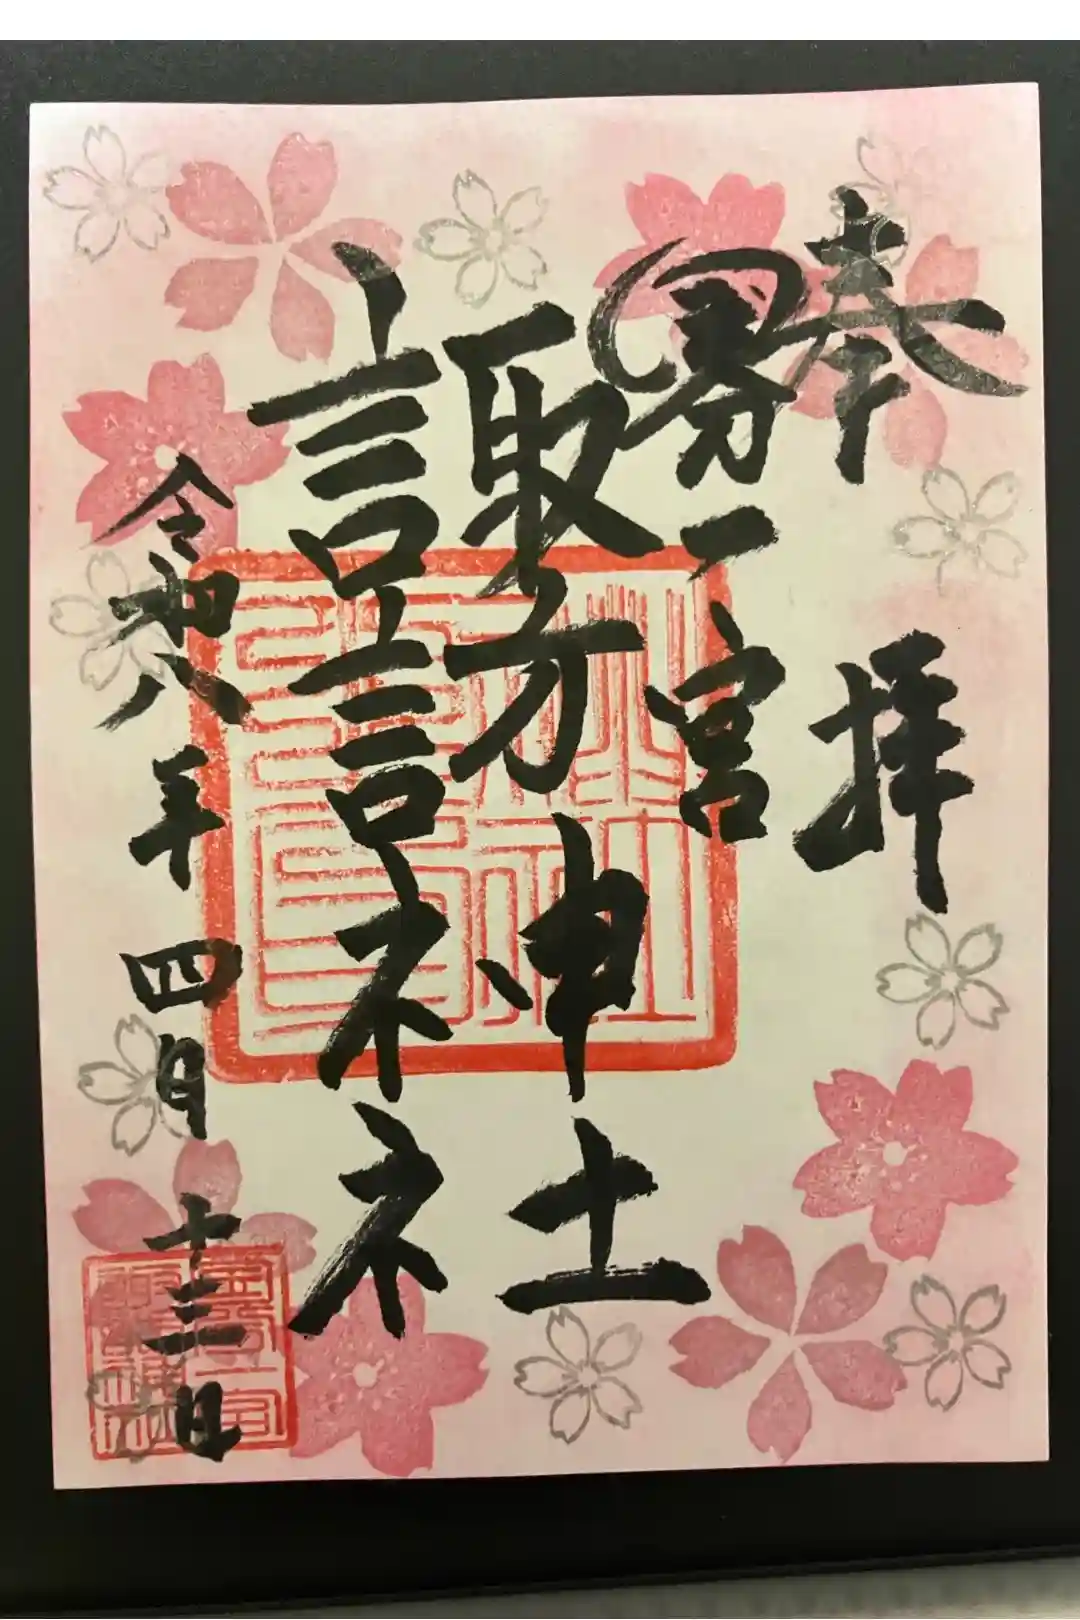 奉拝
一宮
諏訪神社
令和八年四月十三日